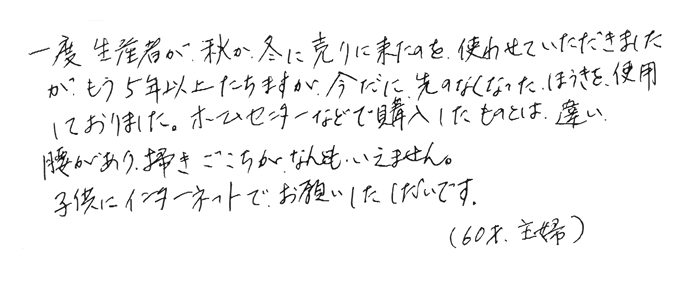 一度生産者が、秋か、冬に売りに来たのを、使わせていただきました
が、もう5年以上たちますが、今だに、先のなくなった、ほうきを、使用
しておりました。ホームセンターなどで購入したものとは、違い、
腰があり、掃きごこちが、なんとも、いえません。
子供にインターネットで、お願いしたしだいです。
(60才、主婦)